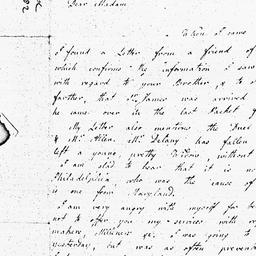 Dear Madam
I found a Letter from a friend of
which confirms the information I saw
with regard to your Brother, & to
farther, that Sr. James was arrived
he came over in the last Packet
My Letter also mentions the Duel
& Mr. Allen. Mr. Delany has fallen
left a young, pretty Widow, without
I am glad to hear that it is no
Philadelphia who was the cause of
is one from Maryland.
I am very angry with myself for be
not to offer you my services with re
makers, Milliners &c. I was going to
yesterday, but was as often prevent